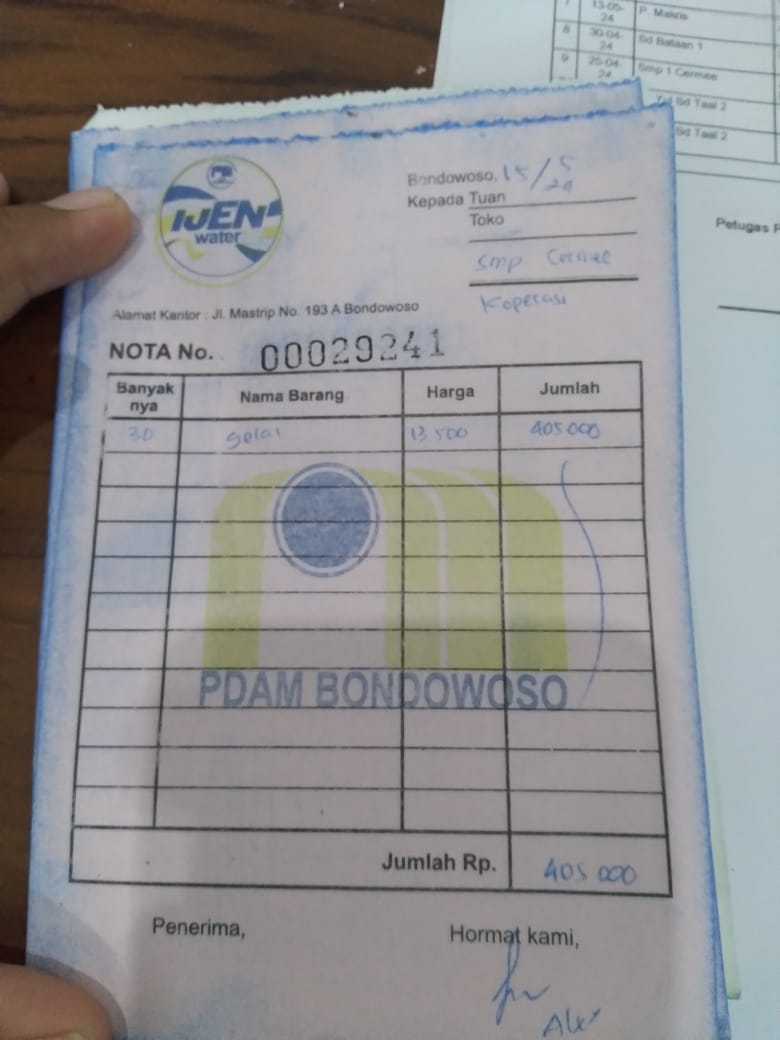 13-05-
24
P. Makris
8
30-04-
24
Sd Bataan 1
9
25-04-
24
Smp 1 Cermee
Sd Taal 2
Sd Taal 2
Petugas P
IJEN
water
Bondowoso, 15/5
24
Kepada Tuan
Toko
Smp Cermee
Koperasi
Alamat Kantor : Jl. Mastrip No. 193 A Bondowoso
NOTA No. 00029241
Banyak nya Nama Barang Harga Jumlah
30 gelas 13 500 405 000
PDAM BONDOWOSO
Jumlah Rp. 405 000
Penerima, Hormat kami,
Alex